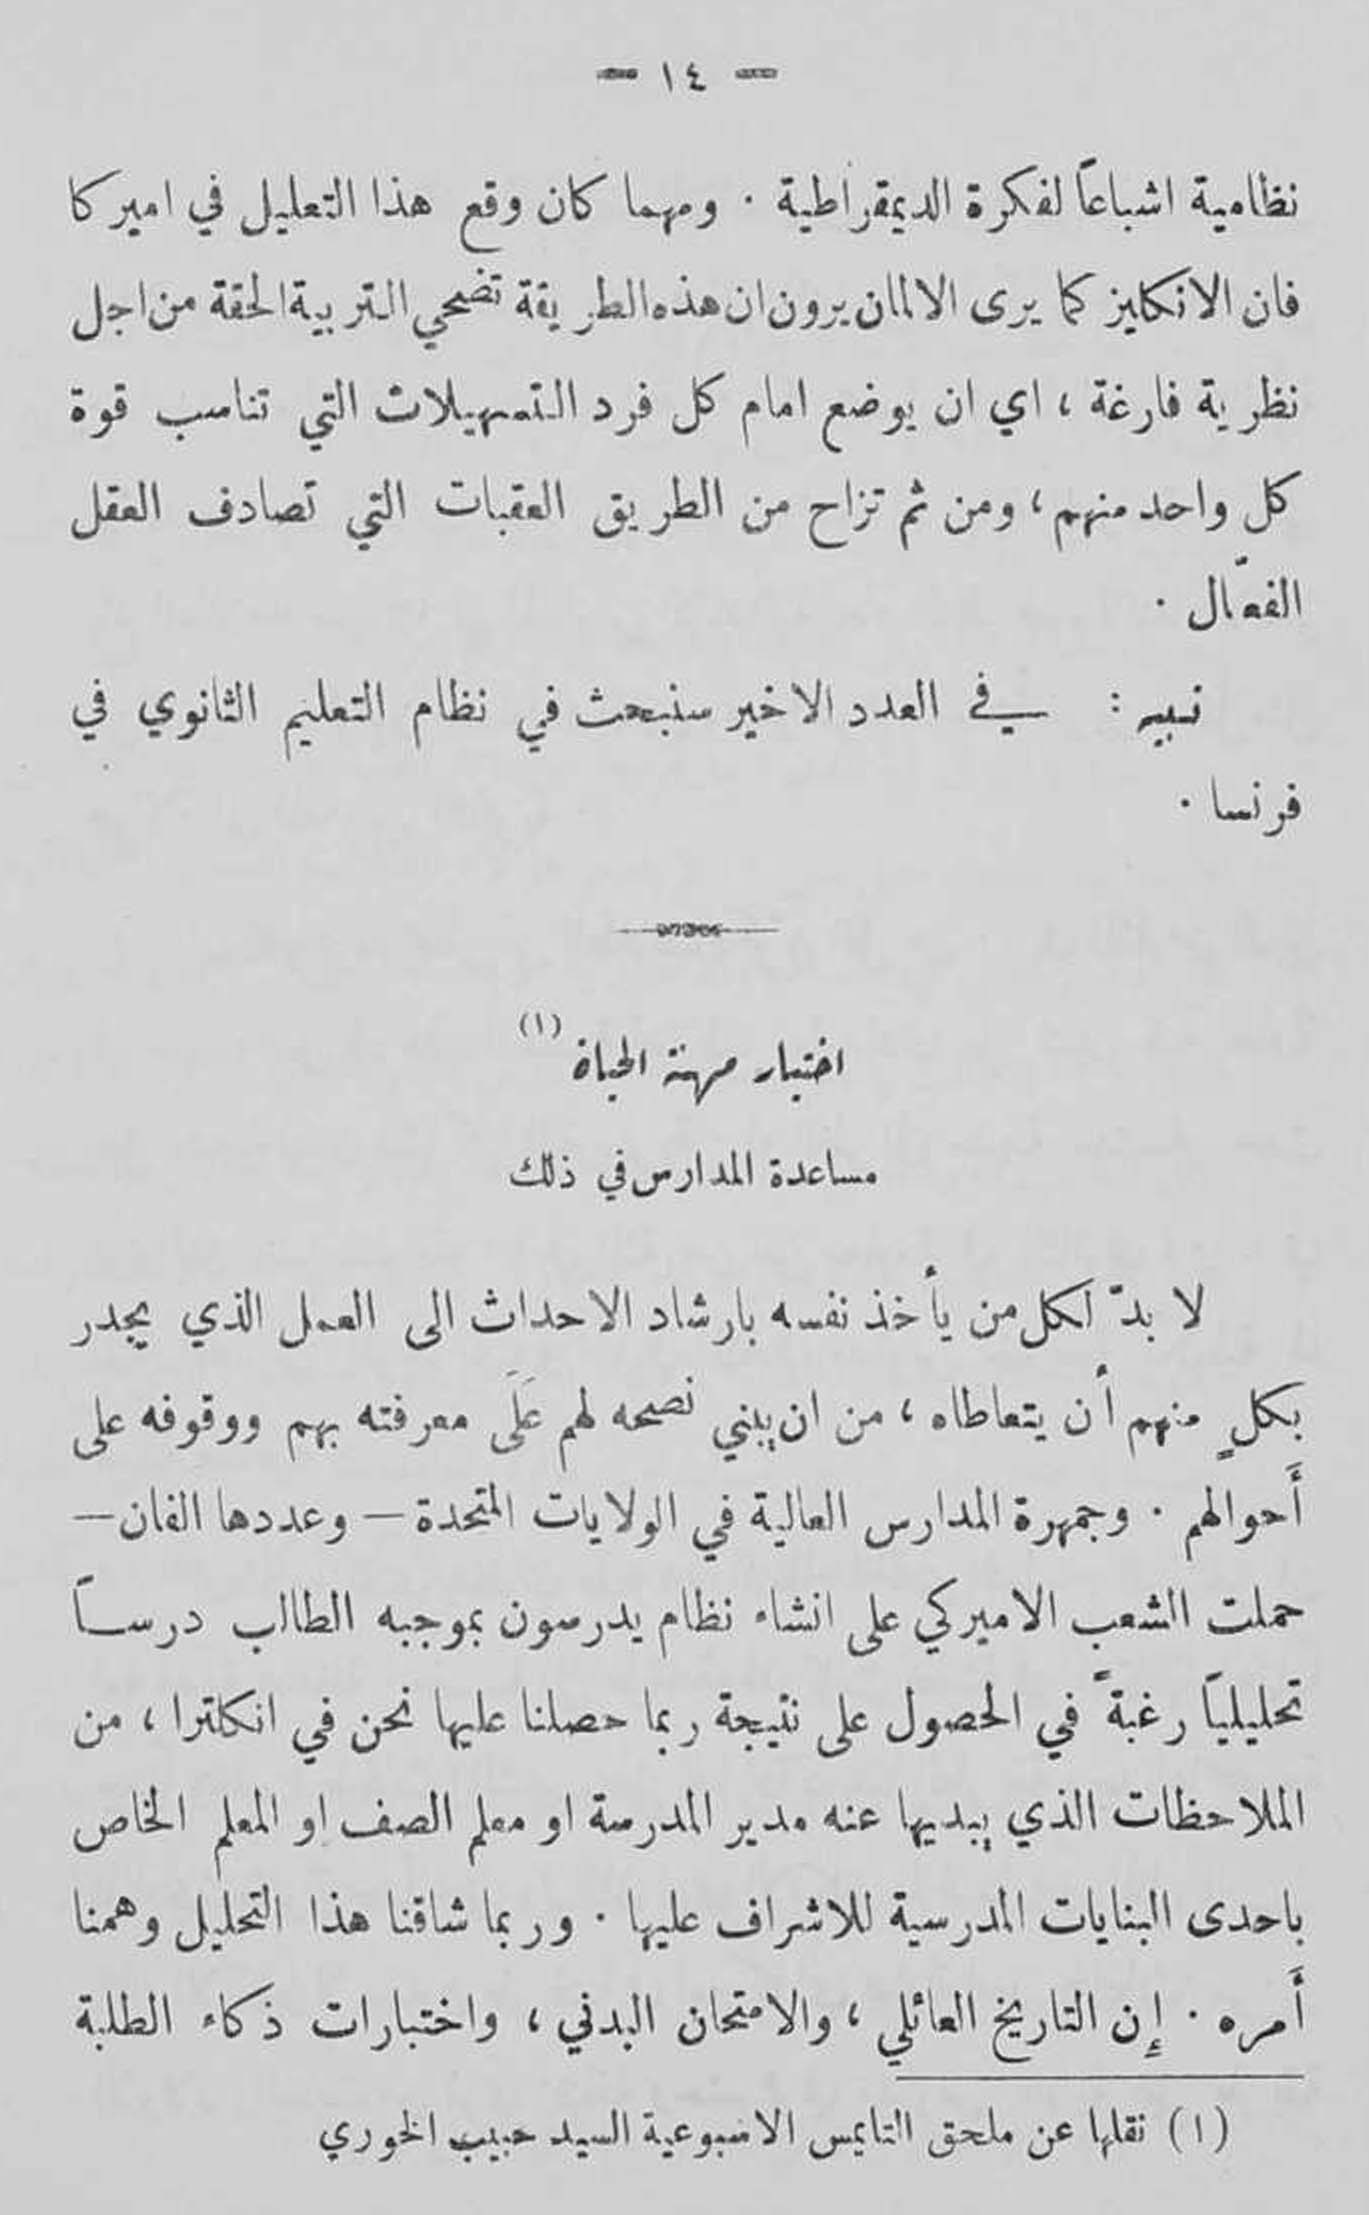 — ١٤ —
نظامية اشباعاً لفكرة الديمقراطية . ومهما كان وقع هذا التعليل في اميركا
فان الانكليز كما يرى الالمان يرون ان هذه الطريقة تضحي التربية الحقة من اجل
نظرية فارغة ، اي ان يوضع امام كل فرد التسهيلات التي تناسب قوة
كل واحد منهم ، ومن ثم تزاح من الطريق العقبات التي تصادف العقل
الفعّال .
تنبيه : في العدد الاخير سنبحث في نظام التعليم الثانوي في
فرنسا .
اختيار مهنة الحياة (١)
مساعدة المدارس في ذلك
لا بدّ لكل من يأخذ نفسه بارشاد الاحداث الى العمل الذي يجدر
بكلٍ منهم أن يتعاطاه ، من ان يبني نصحه لهم عَلَى معرفته بهم ووقوفه على
أَحوالهم . وجمهرة المدارس العالية في الولايات المتحدة — وعددها الفان —
حملت الشعب الاميركي على انشاء نظام يدرسون بموجبه الطالب درساً
تحليلياً رغبةً في الحصول على نتيجة ربما حصلنا عليها نحن في انكلترا ، من
الملاحظات الذي يبديها عنه مدير المدرسة او معلم الصف او المعلم الخاص
باحدى البنايات المدرسية للاشراف عليها . وربما شاقنا هذا التحليل وهمنا
أَمره . إِن التاريخ العائلي ، والامتحان البدني ، واختبارات ذكاء الطلبة
(١) نقلها عن ملحق التايمس الاسبوعية السيد حبيب الخوري